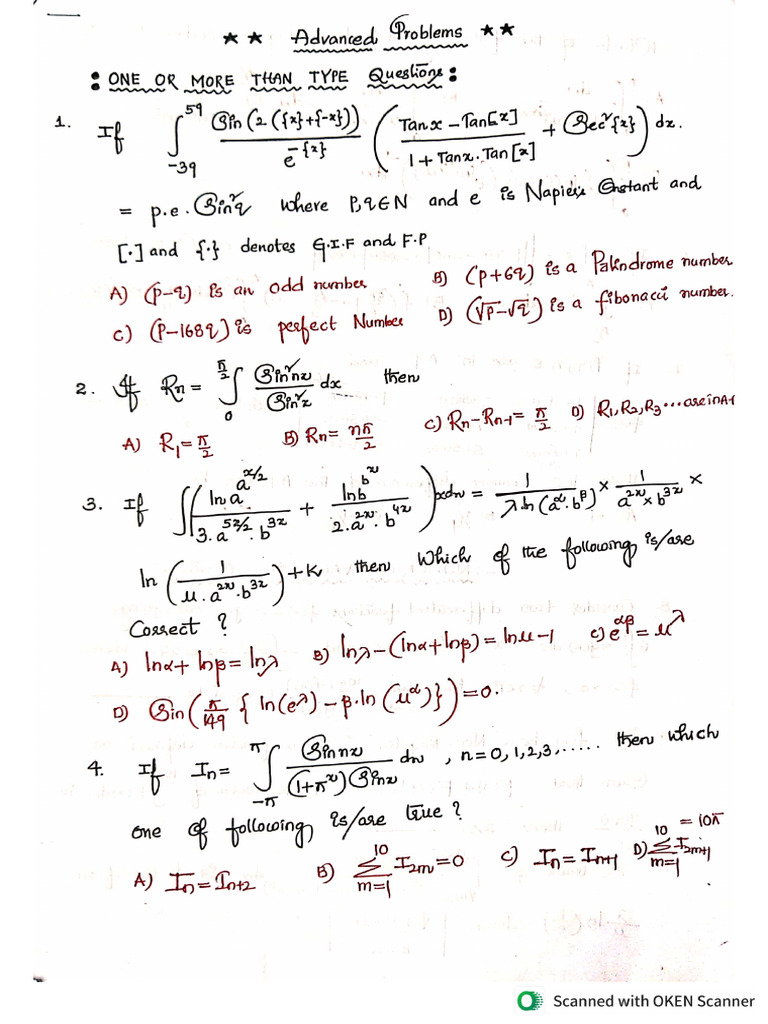 ★ ★ Advanced Problems ★ ★
: ONE OR MORE THAN TYPE Questions :
1. If ∫_{-39}^{59} Sin(2({x}+{-x})) / e^{-{x}} ( (Tanx − Tan[x]) / (1+Tanx.Tan[x]) + Sec²{x} ) dx.
= p.e.Sin²q where P,q∈N and e is Napiers Constant and
[.] and {.} denotes G.I.F and F.P
A) (p-q) is an odd number B) (p+6q) is a Palindrome number
C) (p-168q) is perfect Number D) (√p-√q) is a fibonacci number.
2. If Rn = ∫_0^{π/2} Sin²nx / Sin²x dx then
A) R₁ = π/2 B) Rn = nπ/2 C) Rn - Rn-1 = π/2 D) R₁, R₂, R₃ ... are in A.P
3. If ∫ ( ln a^{a^{x/2}} / 3.a^{5x/2}.b^{3x} + ln b^{b^x} / 2.a^{2x}.b^{4x} ) xdx = 1 / λ ln(a^α.b^β) × 1 / a^{2x}×b^{3x} ×
ln ( 1 / μ.a^{2x}.b^{3x} ) + K then Which of the following is/are
Correct ?
A) lnα + lnβ = lnλ B) lnλ - (lnα+lnβ) = lnμ - 1 C) e^{αβ} = μ^λ
D) Sin( π/149 { ln(e^λ) - β.ln(μ^α) } ) = 0.
4. If In = ∫_{-π}^{π} Sin nx / (1+π^x) Sinx dx , n=0,1,2,3,..... then which
one of following is/are true ?
A) In = In+2 B) ∑_{m=1}^{10} I2m = 0 C) In = In+1 D) ∑_{m=1}^{10} I2m+1 = 10π
Scanned with OKEN Scanner